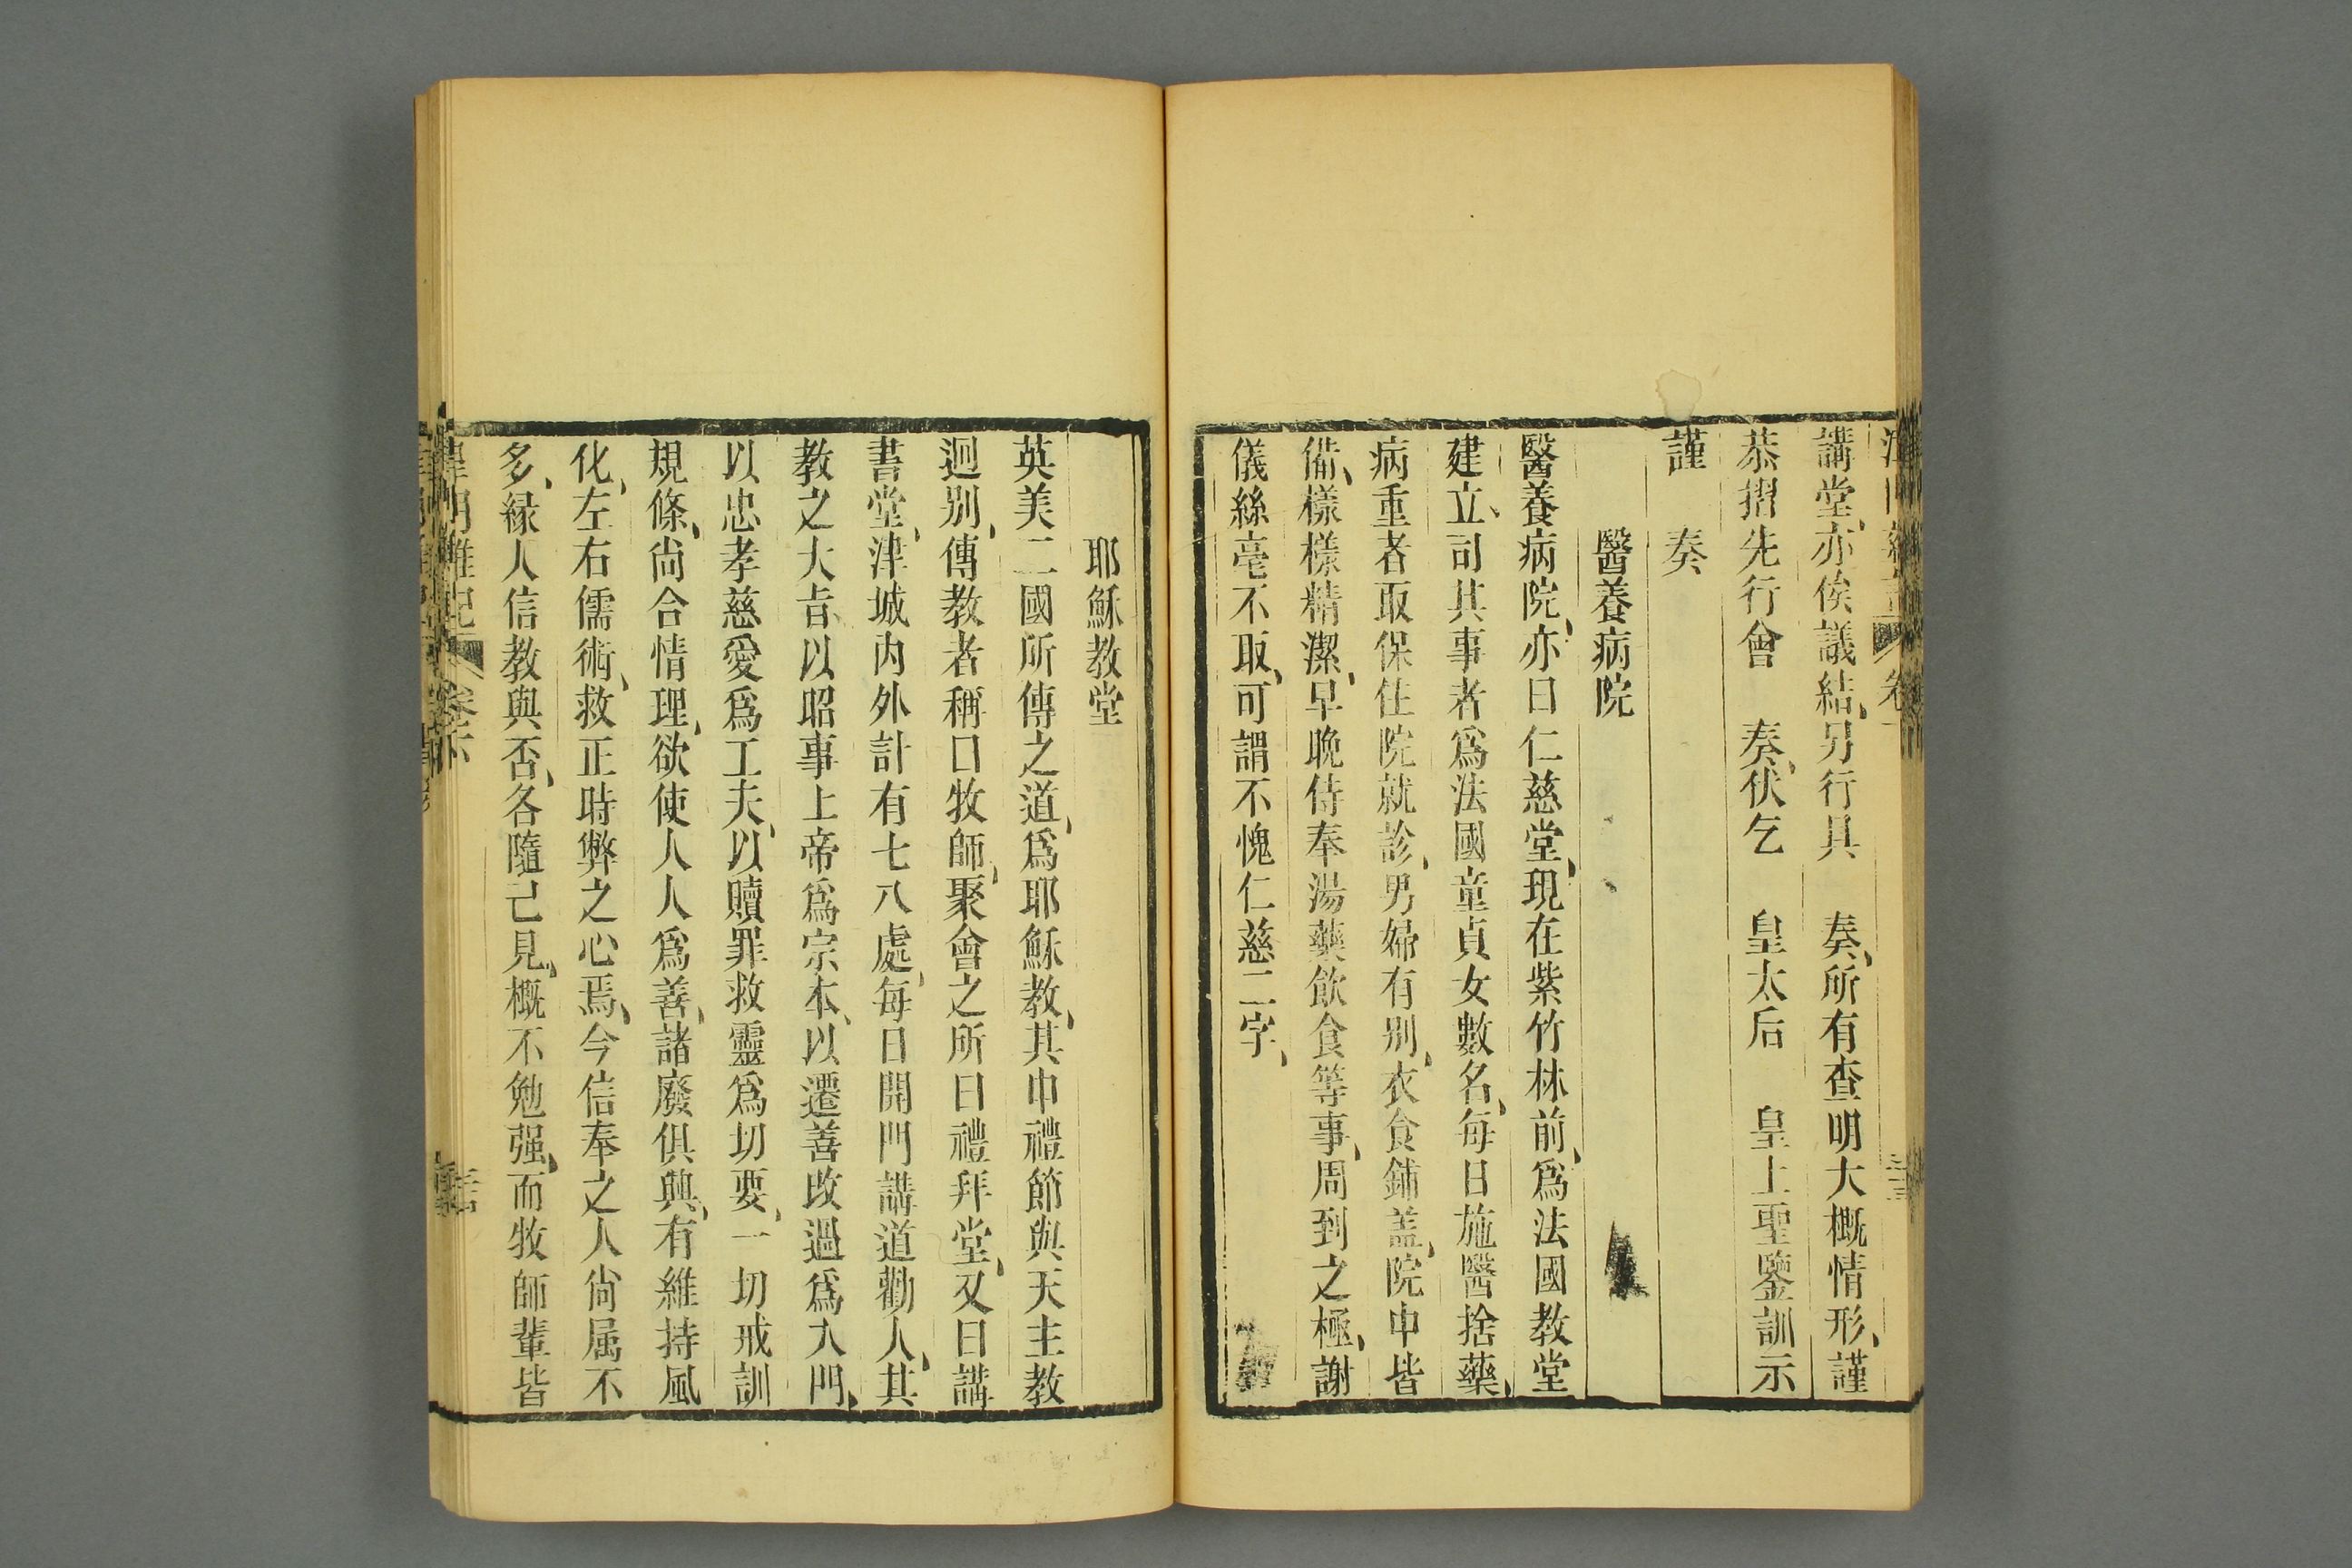 講堂、亦俟議結、另行具　奏、所有查明大概情形、謹
恭摺先行會　奏、伏乞　皇太后　皇上聖鑒訓示
謹　奏
醫養病院
醫養病院、亦曰仁慈堂、現在紫竹林前、爲法國教堂
建立、司其事者爲法國童貞女數名、每日施醫捨藥、
病重者取保住院就診、男婦有别、衣食鋪盖、院中皆
備、樣樣精潔、早晚侍奉湯藥飲食等事、周到之極、謝
儀絲毫不取、可謂不愧仁慈二字、
耶穌教堂
英美二國所傳之道、爲耶穌教、其中禮節與天主教
迥别、傳教者稱曰牧師、聚會之所曰禮拜堂、又曰講
書堂、津城内外計有七八處、每日開門講道勸人、其
教之大旨、以昭事上帝爲宗本、以遷善改過爲入門、
以忠孝慈愛爲工夫、以贖罪救靈爲切要、一切戒訓
規條、尚合情理、欲使人人爲善、諸廢俱興、有維持風
化、左右儒術、救正時弊之心焉、今信奉之人尚属不
多、緣人信教與否、各隨己見、概不勉强、而牧師輩皆
卷下